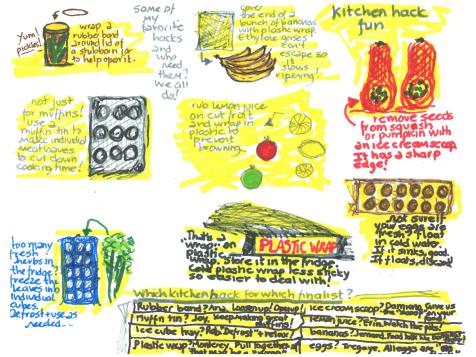 Yum!
pickles!
wrap a
rubber band
around lid of
a stubborn jar
to help open it.
some of
my
favorite
hacks
and
who
need
them?
we all
do!
cover
the end of a
bunch of bananas
with plastic wrap.
Ethylene gases
can't
escape so
it
slows
ripening!
Kitchen hack
fun
remove seeds
from squash
or pumpkin with
an ice cream scoop.
It has a sharp
edge!
not just
for muffins!
use a
muffin tin to
make individual
meatloaves
to cut down
cooking time!
rub lemon juice
on cut fruit
and wrap in
plastic to
prevent
browning.
too many
fresh
herbs in
the fridge?
freeze the
leaves into
individual
cubes.
Defrost + use as
needed...
That's a
wrap: on
Plastic wrap, store it in the fridge.
Cold plastic wrap less sticky
so easier to deal with!
PLASTIC WRAP
not sure if
your eggs are
fresh? Float
in cold water.
If it sinks, good.
If floats, discard!
Which kitchen hack for which finalist?
Rubber band? Ana. Loosen up! Opens!
Muffin tin? Joy. Keep making great
Ice cube tray? Rob. Defrost + relax!
Plastic wrap? Monterey. Pull together
ice cream scoop? Damiano. Give us
the "scoop" on your
lemon juice? Erin. Watch the
bananas? Bernard. Food talk
eggs? Tregaye. All eggs are